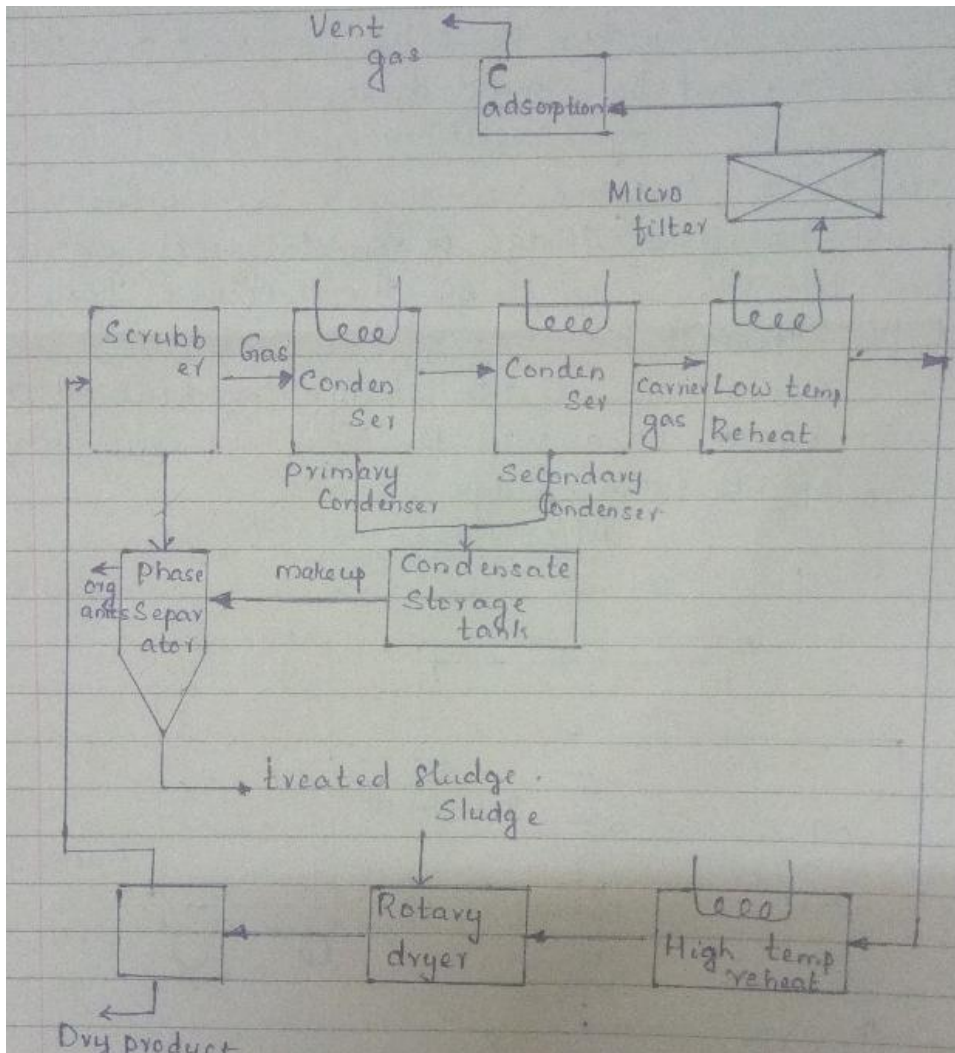 Vent
gas
C
adsorption
Micro
filter
Scrubb
er
Gas
Conden
Ser
Conden
Ser
Carrier
gas
Low temp
Reheat
primary
Condenser
Secondary
Condenser
org
anics
Phase
Separ
ator
makeup
Condensate
Storage
tank
treated sludge.
Sludge
Rotary
dryer
High temp
reheat
Dry product